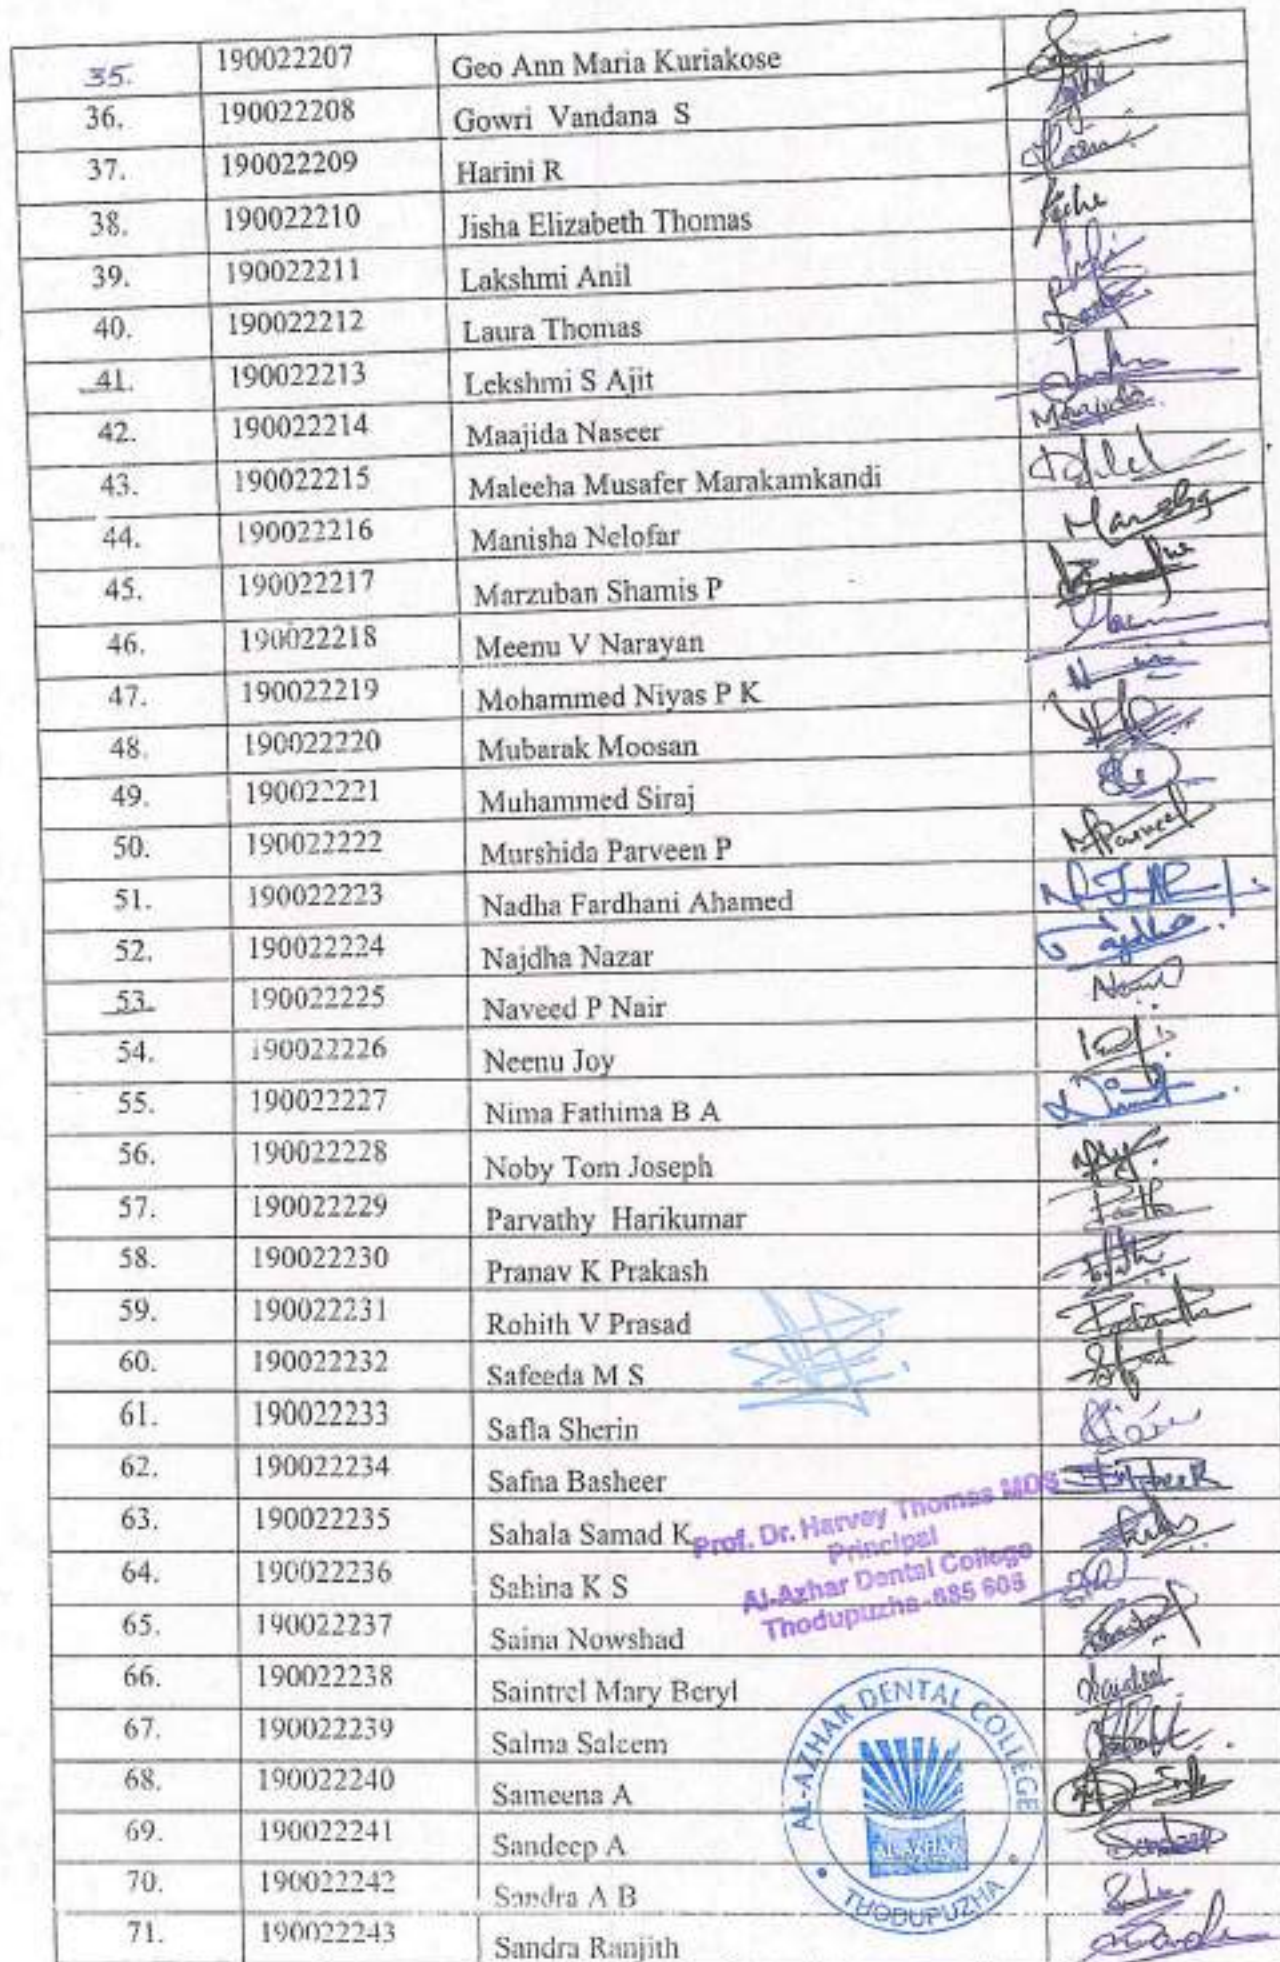 35. 190022207 Geo Ann Maria Kuriakose
36. 190022208 Gowri Vandana S
37. 190022209 Harini R
38. 190022210 Jisha Elizabeth Thomas
39. 190022211 Lakshmi Anil
40. 190022212 Laura Thomas
41. 190022213 Lekshmi S Ajit
42. 190022214 Maajida Naseer Maajida
43. 190022215 Maleeha Musafer Marakamkandi
44. 190022216 Manisha Nelofar
45. 190022217 Marzuban Shamis P
46. 190022218 Meenu V Narayan
47. 190022219 Mohammed Niyas P K
48. 190022220 Mubarak Moosan
49. 190022221 Muhammed Siraj
50. 190022222 Murshida Parveen P
51. 190022223 Nadha Fardhani Ahamed
52. 190022224 Najdha Nazar
53. 190022225 Naveed P Nair
54. 190022226 Neenu Joy
55. 190022227 Nima Fathima B A
56. 190022228 Noby Tom Joseph
57. 190022229 Parvathy Harikumar
58. 190022230 Pranav K Prakash
59. 190022231 Rohith V Prasad
60. 190022232 Safeeda M S
61. 190022233 Safla Sherin
62. 190022234 Safna Basheer
63. 190022235 Sahala Samad K
Prof. Dr. Harvey Thomas MDS
Principal
64. 190022236 Sahina K S
Al-Azhar Dental College
Thodupuzha-685 605
65. 190022237 Saina Nowshad
66. 190022238 Saintrel Mary Beryl
67. 190022239 Salma Saleem
68. 190022240 Sameena A
69. 190022241 Sandeep A Sandeep
70. 190022242 Sandra A B
71. 190022243 Sandra Ranjith
AL-AZHAR DENTAL COLLEGE
AL-AZHAR
THODUPUZHA